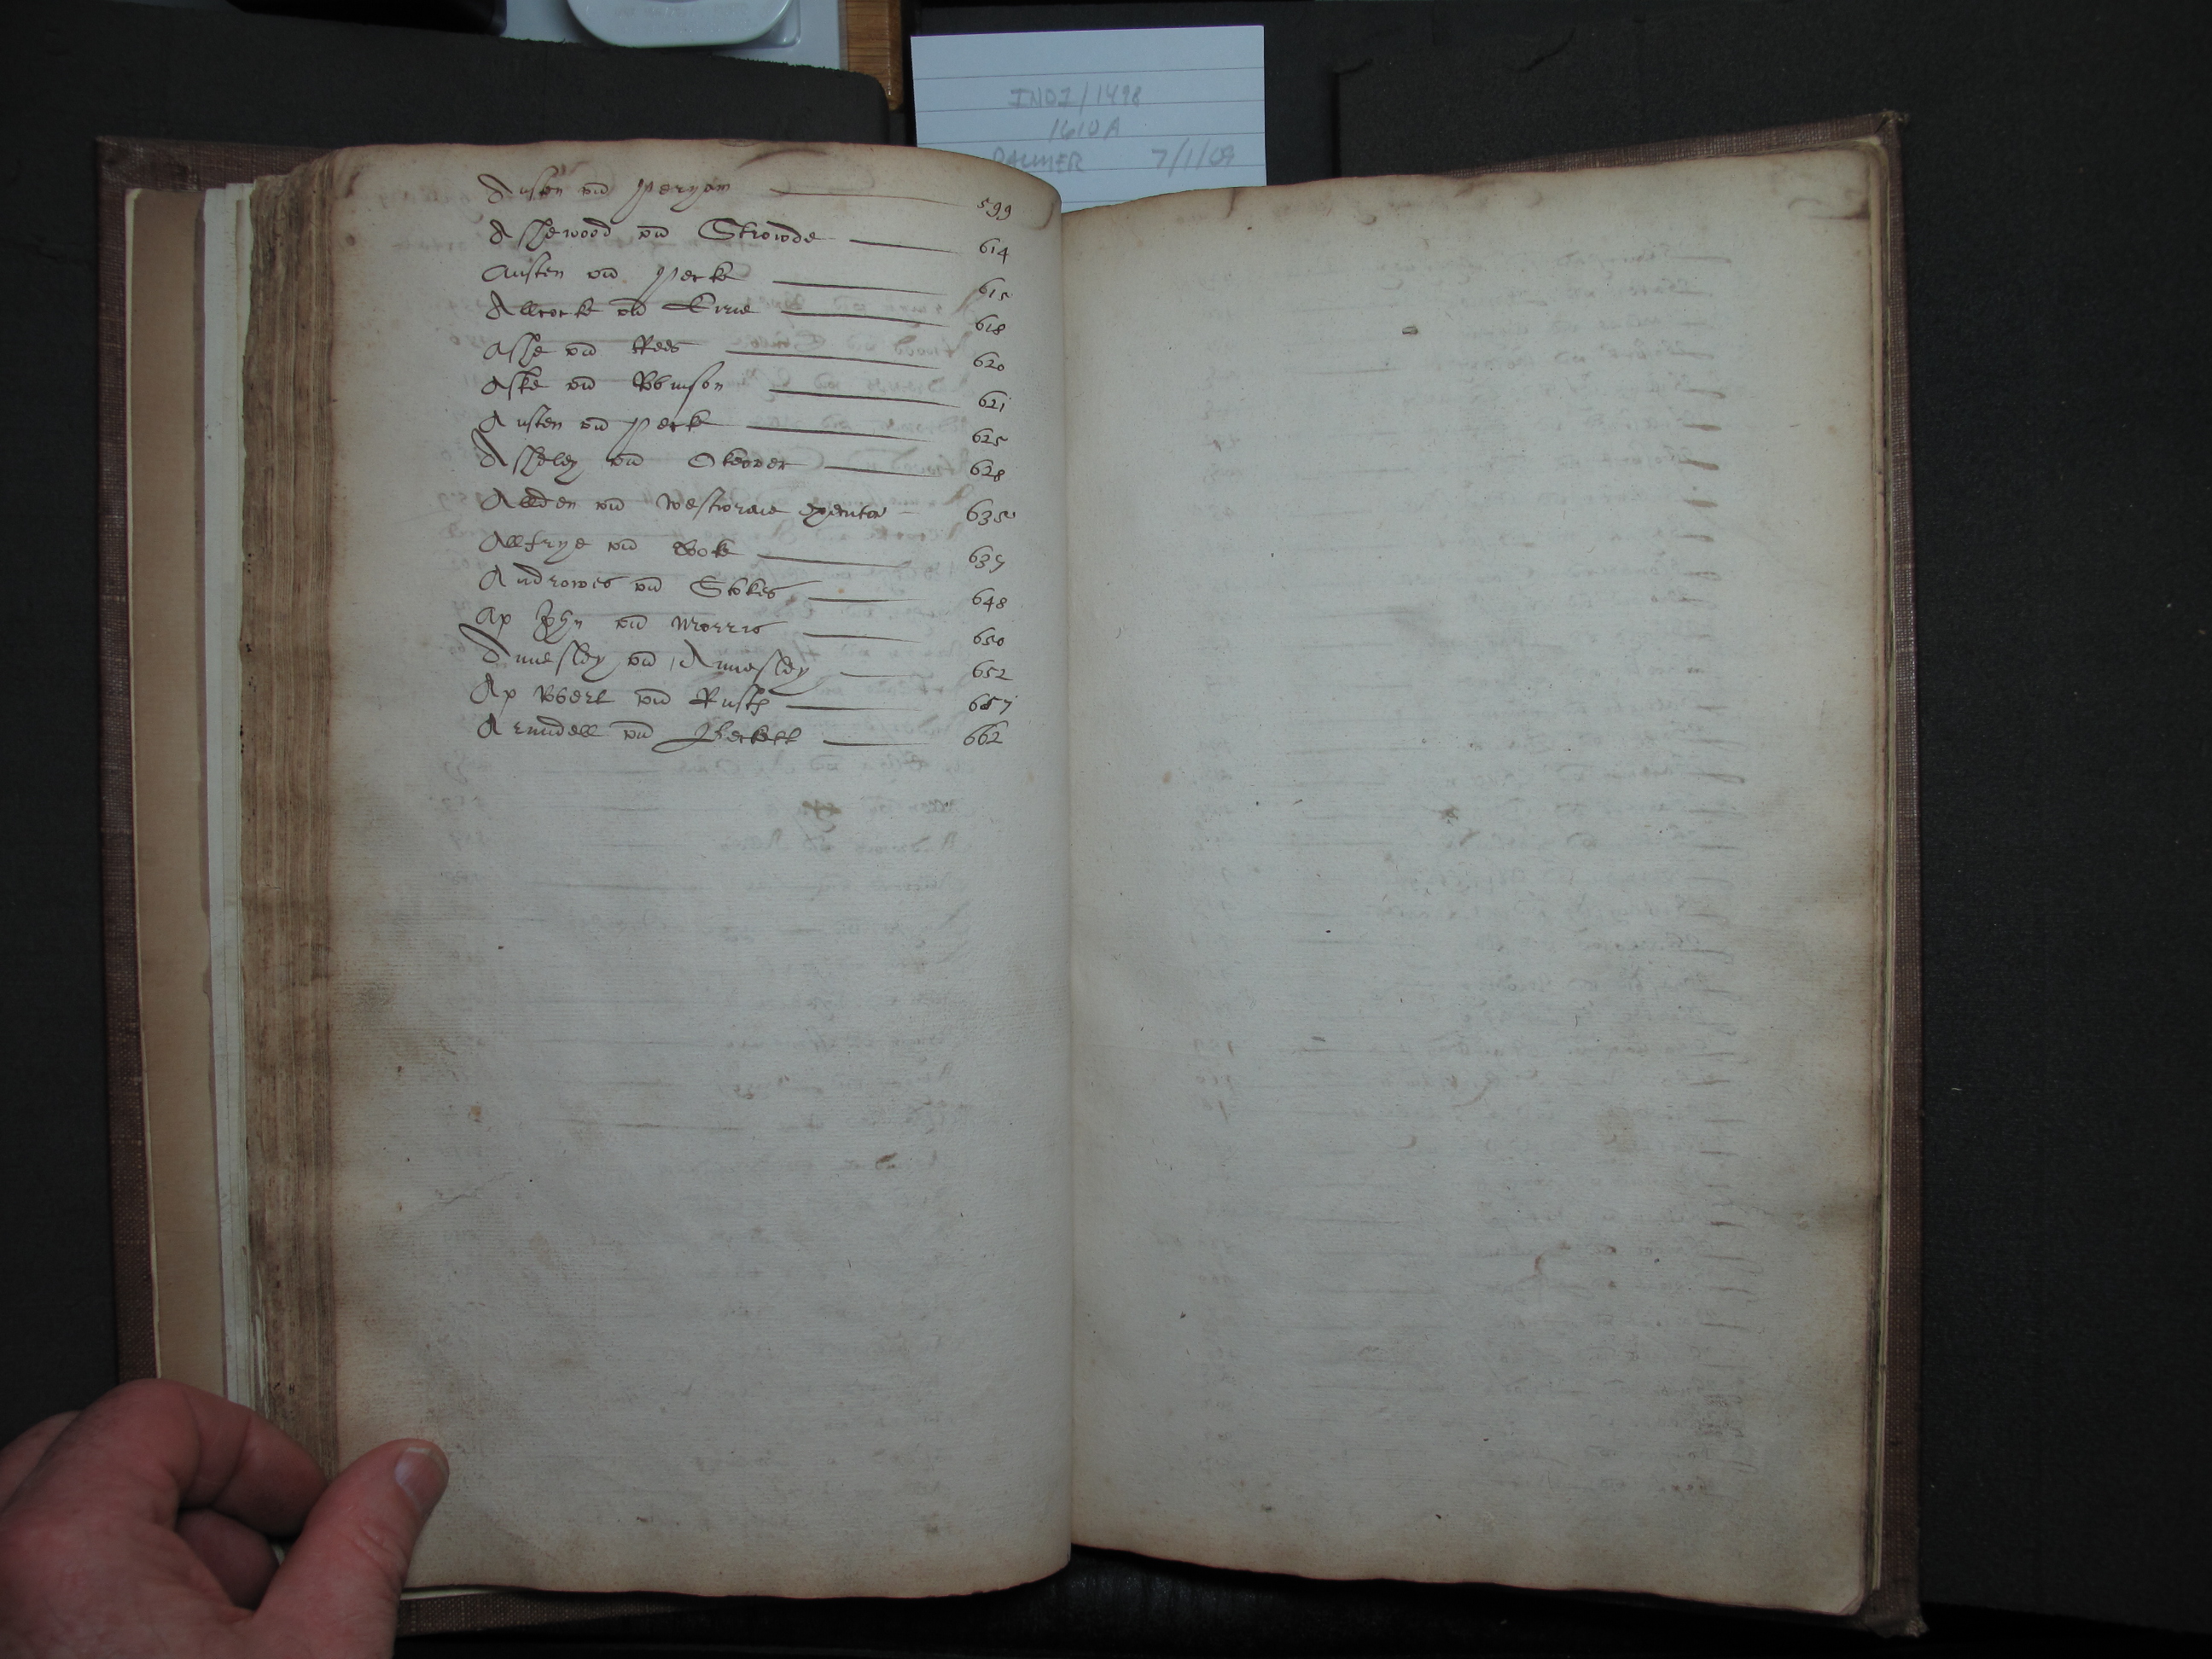 IND1/1498
1610A
PALMER 7/1/09
Austen vs Peryam 599
Asshewood vs Strowde 614
Austen vs Pecke 615
Allcocke vs 618
Asshe vs Rees 620
Aske vs Robinson 621
Austen vs Peck 625
Assheley vs Okeover 628
Allden vs Westwraie 635
Allfrye vs Cooke 637
Androwes vs Stokes 648
Ap John vs Morris 650
Annesley vs Annesley 652
Ap Robert vs Rusth 657
Arundell vs 662